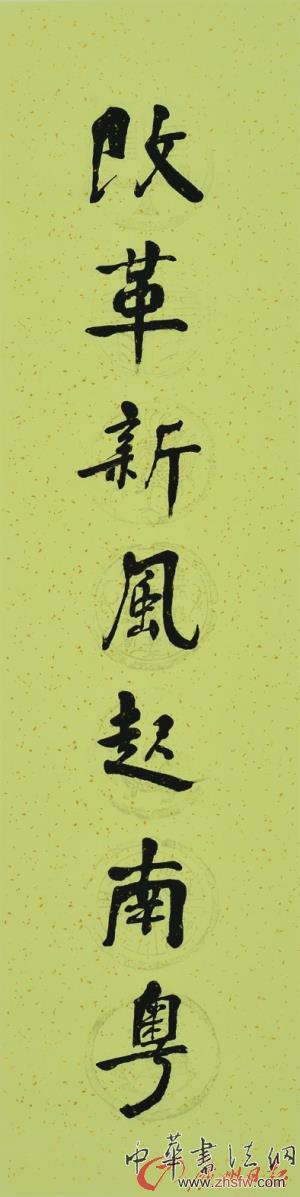 改革新風起南粤
中華書法網
广州日报
www.zhsfw.com